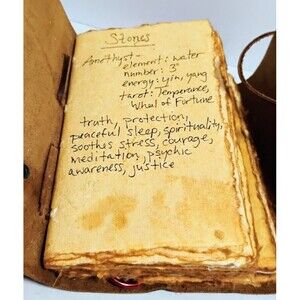 Stones
Amethyst-
element: water
number: 3
energy: yin, yang
tarot: Temperance,
Wheal of Fortune
truth, protection,
peaceful sleep, spirituality,
soothes stress, courage,
meditation, psychic
awareness, justice